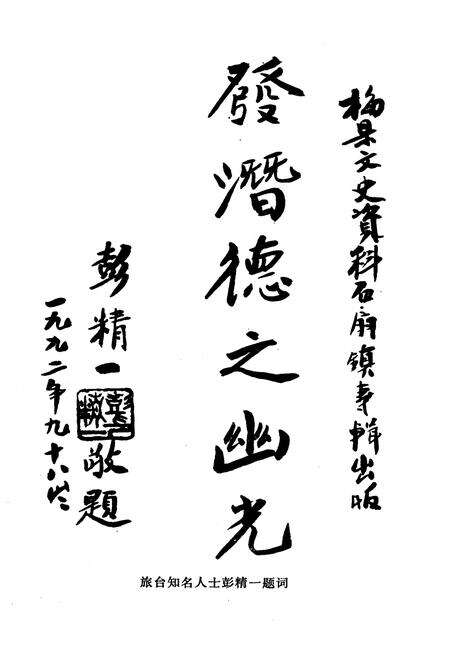 梅县文史資料石扇镇专輯出版
發潛德之幽光
彭精一敬題
一九九二年九十八岁
旅台知名人士彭精一题词